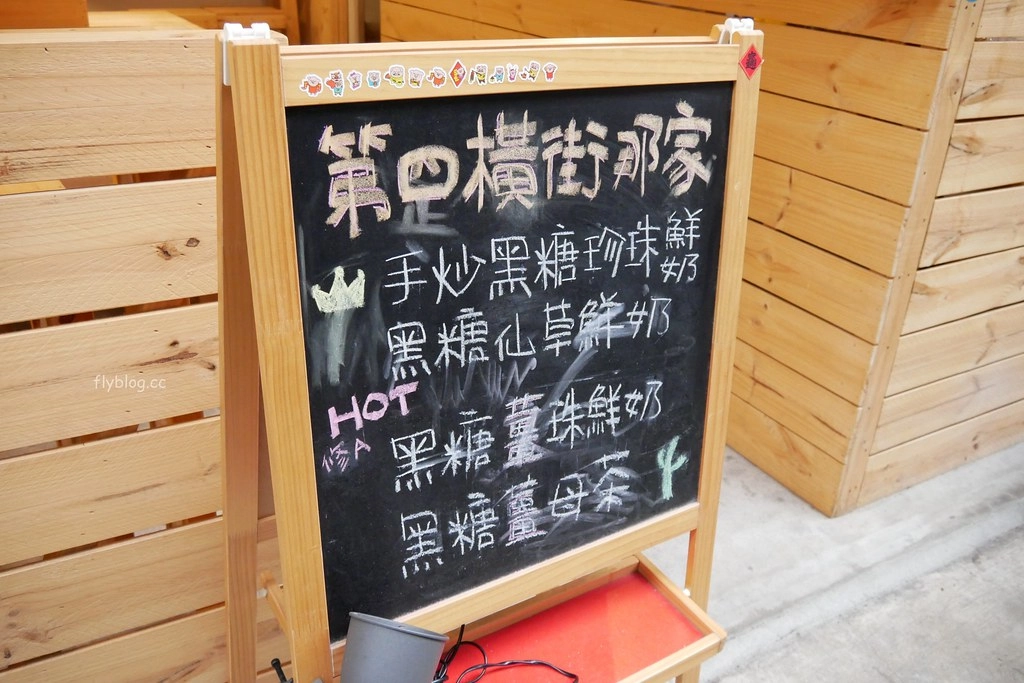 第四橫街那家
手炒黑糖珍珠鮮奶
黑糖仙草鮮奶
HOT
修A
黑糖薑珠鮮奶
黑糖薑母茶
flyblog.cc